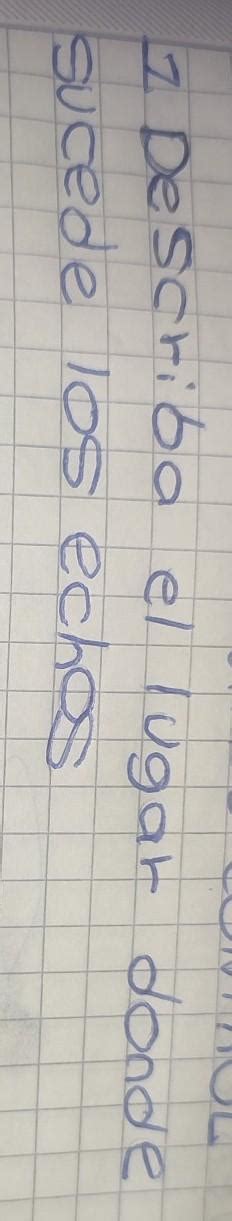 1 Describa el lugar donde
sucede los echos